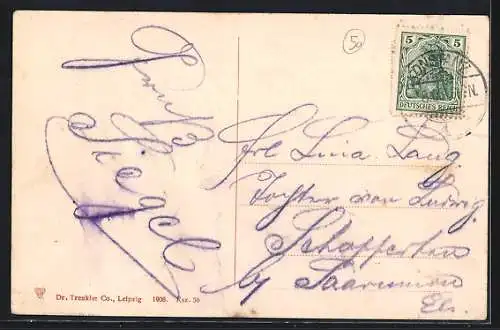 Gruß
Siegel
50
5 5
DEUTSCHES REICH
KONSTANZ
Frl. Lina Lang
Tochter von Ludwig
Schopperten
by Saarunion
Els.
Dr. Trenkler Co., Leipzig 1908. Ksz. 56